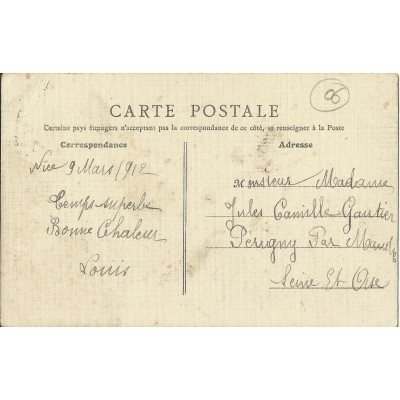 06
CARTE POSTALE
Certains pays étrangers n'acceptant pas la correspondance de ce côté, se renseigner à la Poste
Correspondance
Nice 9 Mars 1912
Temps superbe
Bonne Chaleur
Louis
Adresse
Monsieur Madame
Jules Camille Gautier
Périgny Par Mandres
Seine Et Oise